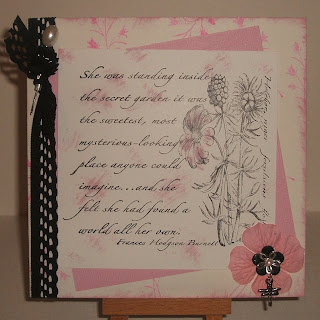 She was standing inside
the secret garden it was
the sweetest, most
mysterious-looking
place anyone could
imagine...and she
felt she had found a
world all her own.
Frances Hodgson Burnett